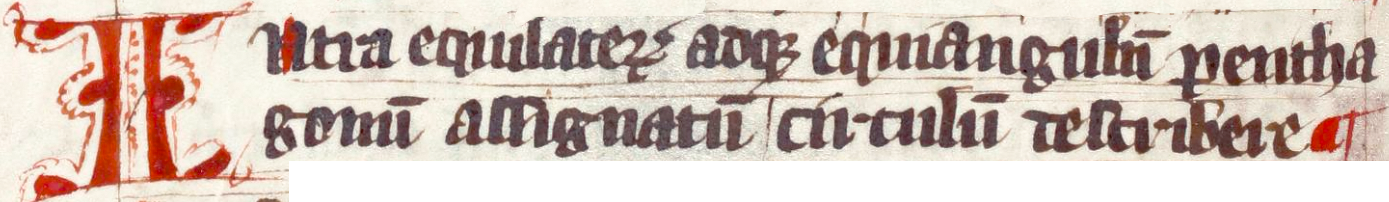 Intra equilateꝝ adqꝫ equiangulū pentha
gonū assignatū circulū describere